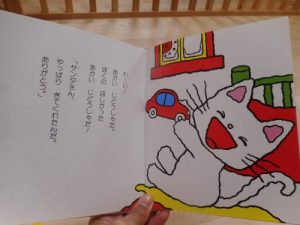 わーい！
あかい じどうしゃだ。
ぼくの ほしかった
あかい じどうしゃだ！
“サンタさん、
やっぱり きてくれたんだ。
ありがとう”